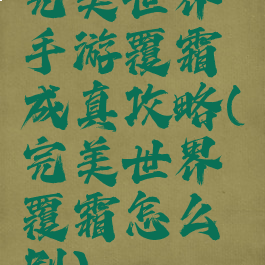 完美世界
手游覆霜
成真攻略(
完美世界
覆霜怎么
刻)